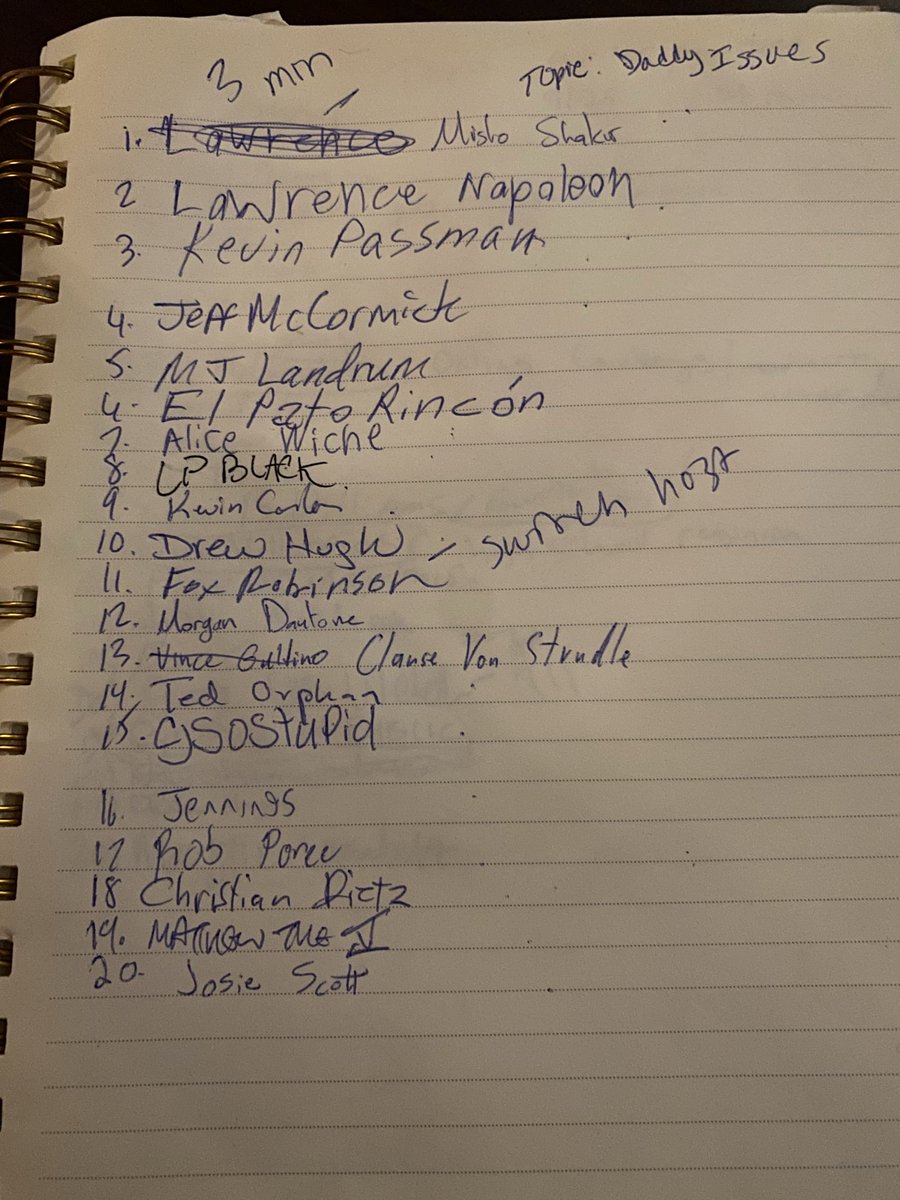 3 min
Topic: Daddy Issues
1. Lawrence Misho Shakur
2 Lawrence Napoleon
3. Kevin Passman
4. Jeff McCormick
5. MJ Landrum
4. El Pato Rincón
7. Alice Wiche
8. LP BLACK
9. Kevin
10. Drew Hugh - switch host
11. Fox Robinson
12. Morgan Dautove
13. Vince Gultino Clause Von Strudle
14. Ted Orphan
15. CJSOStupid
16. Jennings
17 Rob Poree
18 Christian Dietz
19. MATTHEW THE J
20. Josie Scott